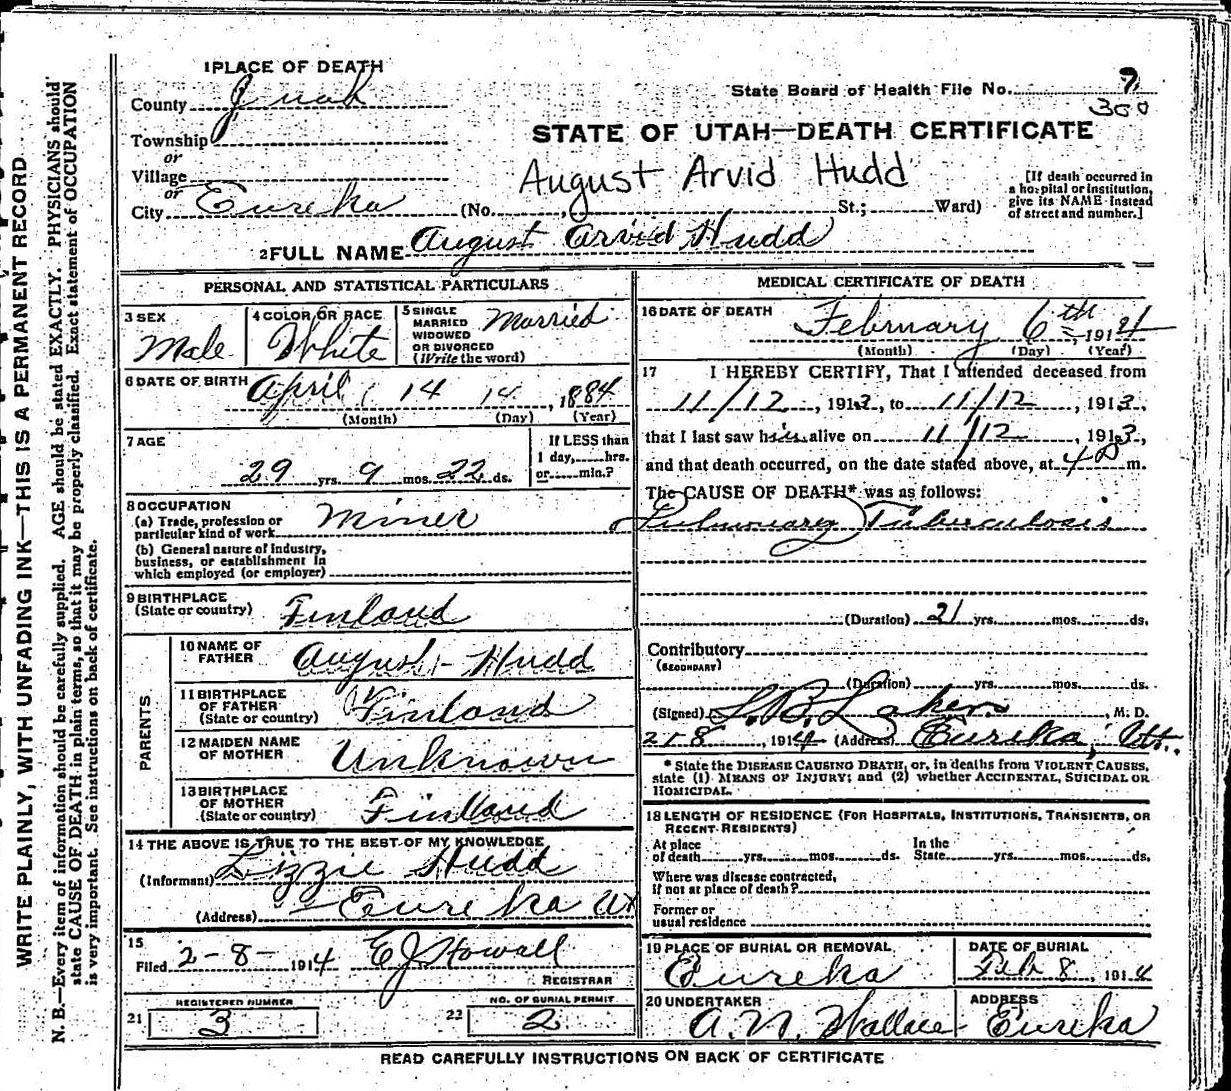 1 PLACE OF DEATH
County Juab
State Board of Health File No. 7
300
Township
or
STATE OF UTAH—DEATH CERTIFICATE
Village
or
August Arvid Hudd
[If death occurred in a hospital or institution, give its NAME instead of street and number.]
City Eureka (No. St.; Ward)
2 FULL NAME August Arvid Hudd
PERSONAL AND STATISTICAL PARTICULARS
3 SEX
Male
4 COLOR OR RACE
White
5 SINGLE
MARRIED
WIDOWED
OR DIVORCED
(Write the word)
Married
6 DATE OF BIRTH
April 14 14, 1884
(Month) (Day) (Year)
7 AGE
29 yrs. 9 mos. 22 ds.
If LESS than
1 day, hrs.
or min.?
8 OCCUPATION
(a) Trade, profession or
particular kind of work Miner
(b) General nature of industry,
business, or establishment in
which employed (or employer)
9 BIRTHPLACE
(State or country) Finland
PARENTS
10 NAME OF
FATHER August Hudd
11 BIRTHPLACE
OF FATHER
(State or country) Finland
12 MAIDEN NAME
OF MOTHER Unknown
13 BIRTHPLACE
OF MOTHER
(State or country) Finland
14 THE ABOVE IS TRUE TO THE BEST OF MY KNOWLEDGE
(Informant) Lizzie Hudd
(Address) Eureka Ut
15
Filed 2-8-1914 E J Howall
REGISTRAR
REGISTERED NUMBER
21 3
NO. OF BURIAL PERMIT
22 2
MEDICAL CERTIFICATE OF DEATH
16 DATE OF DEATH
February 6th, 191
(Month) (Day) (Year)
17 I HEREBY CERTIFY, That I attended deceased from
11/12, 1913, to 11/12, 1913,
that I last saw him alive on 11/12, 1913,
and that death occurred, on the date stated above, at 4 P m.
The CAUSE OF DEATH* was as follows:
Pulmonary Tuberculosis
(Duration) 21 yrs. mos. ds.
Contributory
(SECONDARY)
(Duration) yrs. mos. ds.
(Signed) , M. D.
218, 1914 (Address) Eureka, Ut.
* State the DISEASE CAUSING DEATH, or, in deaths from VIOLENT CAUSES,
state (1) MEANS OF INJURY; and (2) whether ACCIDENTAL, SUICIDAL OR
HOMICIDAL.
18 LENGTH OF RESIDENCE (FOR HOSPITALS, INSTITUTIONS, TRANSIENTS, OR
RECENT RESIDENTS)
At place
of death yrs. mos. ds.
In the
State yrs. mos. ds.
Where was disease contracted,
if not at place of death?
Former or
usual residence
19 PLACE OF BURIAL OR REMOVAL
Eureka
DATE OF BURIAL
Feb 8, 1914
20 UNDERTAKER
A. N. Wallace
ADDRESS
Eureka
READ CAREFULLY INSTRUCTIONS ON BACK OF CERTIFICATE
WRITE PLAINLY, WITH UNFADING INK—THIS IS A PERMANENT RECORD
N. B.—Every item of information should be carefully supplied. AGE should be stated EXACTLY. PHYSICIANS should
state CAUSE OF DEATH in plain terms, so that it may be properly classified. Exact statement of OCCUPATION
is very important. See instructions on back of certificate.